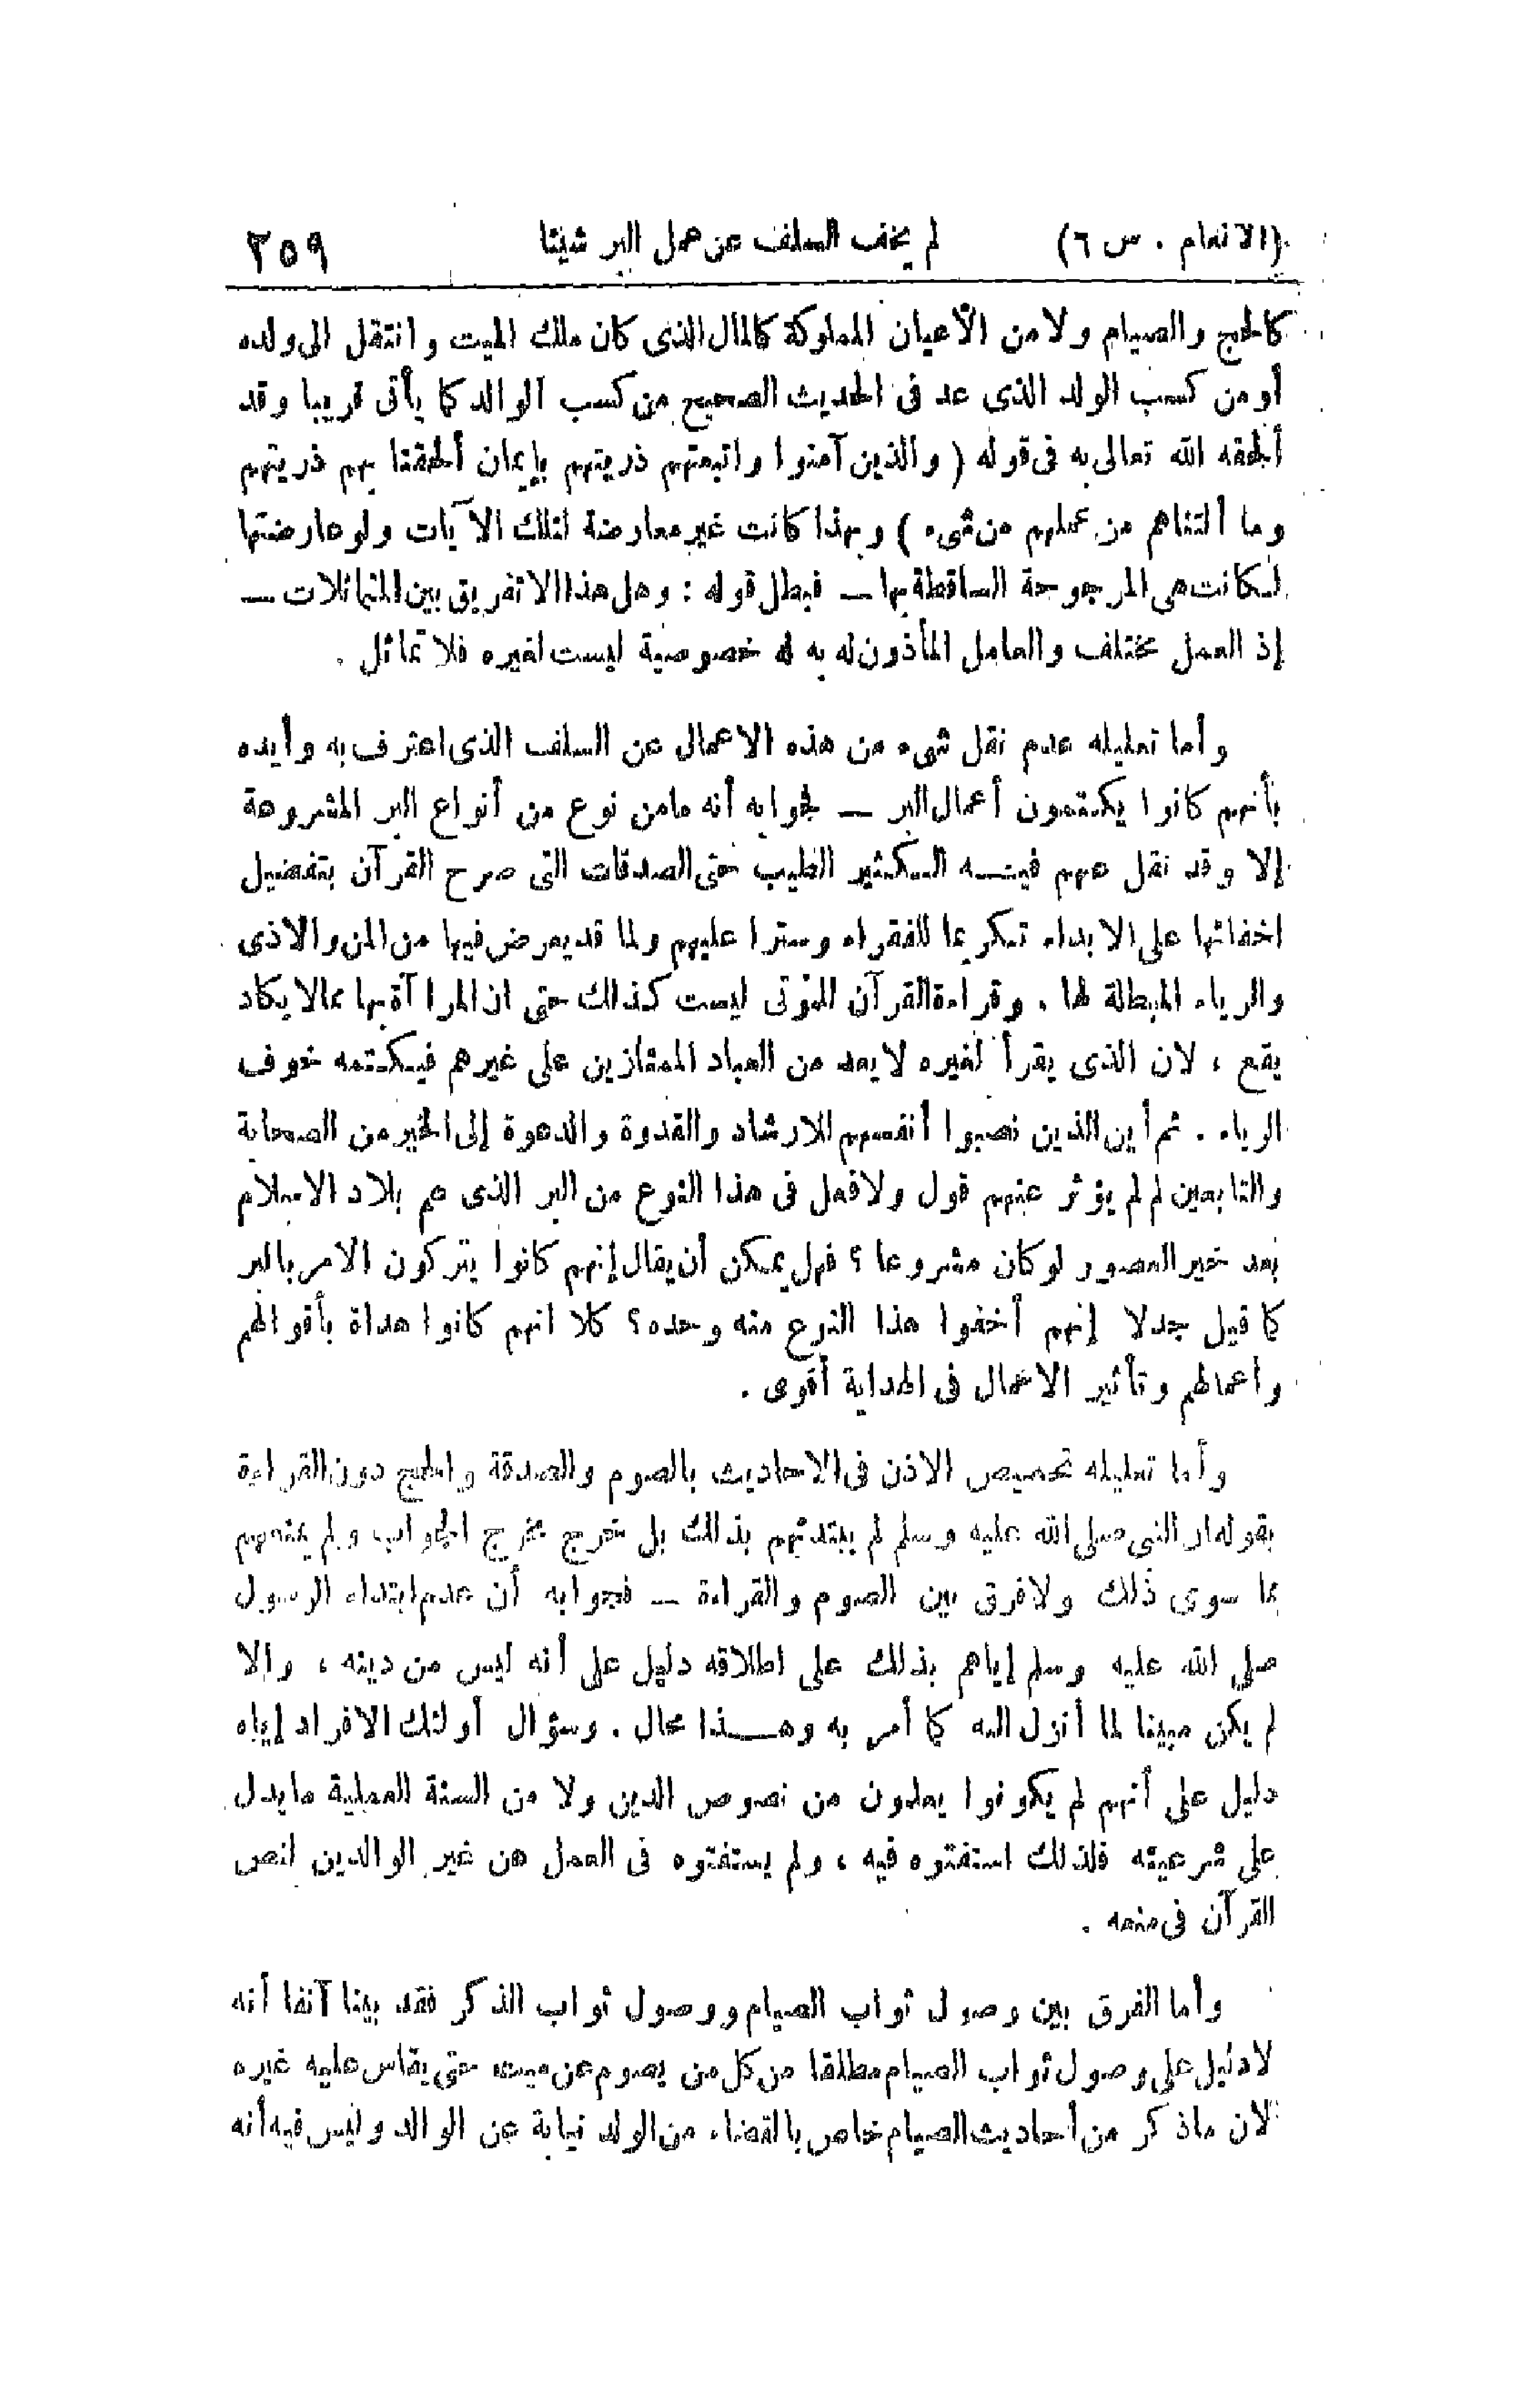 (الانعام . س ٦) لم يخف السلف عن عمل البر شيئا ٢٥٩
كالحج والصيام ولا من الأعيان المملوكة كالمال الذى كان ملك الميت وانتقل الى ولده
أو من كسب الولد الذى عد فى الحديث الصحيح من كسب الوالد كما يأتى قريبا وقد
ألحقه الله تعالى به فى قوله ( والذين آمنوا واتبعتهم ذريتهم بإيمان ألحقنا بهم ذريتهم
وما ألتناهم من عملهم من شىء ) وبهذا كانت غير معارضة لتلك الآيات ولو عارضتها
لكانت هى المرجوحة الساقطة بها — فبطل قوله : وهل هذا الا تفريق بين المتماثلات —
إذ العمل مختلف والعامل المأذون له به له خصوصية ليست لغيره فلا تماثل .
وأما تعليله عدم نقل شىء من هذه الاعمال عن السلف الذى اعترف به وأيده
بأنهم كانوا يكتمون أعمال البر — فجوابه أنه مامن نوع من أنواع البر المشروعة
إلا وقد نقل عنهم فيه الكثير الطيب حتى الصدقات التى صرح القرآن بتفضيل
اخفائها على الابداء تكريما للفقراء وسترا عليهم ولما قد يعرض فيها من المن والاذى
والرياء المبطلة لها . وقراءة القرآن للموتى ليست كذلك حتى ان المراآة بها مما لا يكاد
يقع ، لان الذى يقرأ لغيره لا يعد من العباد الممتازين على غيرهم فيكتمه خوف
الرياء . ثم أين الذين نصبوا أنفسهم للارشاد والقدوة والدعوة إلى الخير من الصحابة
والتابعين لم لم يؤثر عنهم قول ولا فعل فى هذا النوع من البر الذى عم بلاد الاسلام
بعد خير العصور لو كان مشروعا ؟ فهل يمكن أن يقال إنهم كانوا يتركون الامر بالبر
كما قيل جدلا إنهم أخفوا هذا النوع منه وحده ؟ كلا انهم كانوا هداة بأقوالهم
وأعمالهم وتأثير الاعمال فى الهداية أقوى .
وأما تعليله تخصيص الاذن فى الاحاديث بالصوم والصدقة والحج دون القراءة
بقوله ان النبى صلى الله عليه وسلم لم يبتدئهم بذلك بل خرج مخرج الجواب ولم يمنعهم
مما سوى ذلك ولا فرق بين الصوم والقراءة — فجوابه أن عدم ابتداء الرسول
صلى الله عليه وسلم إياهم بذلك على اطلاقه دليل على أنه ليس من دينه ، والا
لم يكن مبينا لما أنزل اليه كما أمر به وهذا محال . وسؤال أولئك الافراد إياه
دليل على أنهم لم يكونوا يعلمون من نصوص الدين ولا من السنة العملية ما يدل
على شرعيته فلذلك استفتوه فيه ، ولم يستفتوه فى العمل عن غير الوالدين لنص
القرآن فى منعه .
وأما الفرق بين وصول ثواب الصيام ووصول ثواب الذكر فقد بينا آنفا أنه
لا دليل على وصول ثواب الصيام مطلقا من كل من يصوم عن ميت حتى يقاس عليه غيره
لان ماذكر من أحاديث الصيام خاص بالقضاء من الولد نيابة عن الوالد وليس فيه أنه